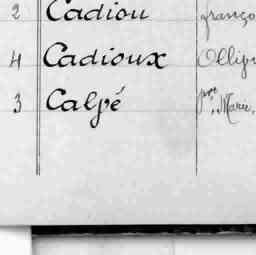 2 Cadiou franço
4 Cadioux Ollipi
3 Calpé Marie,